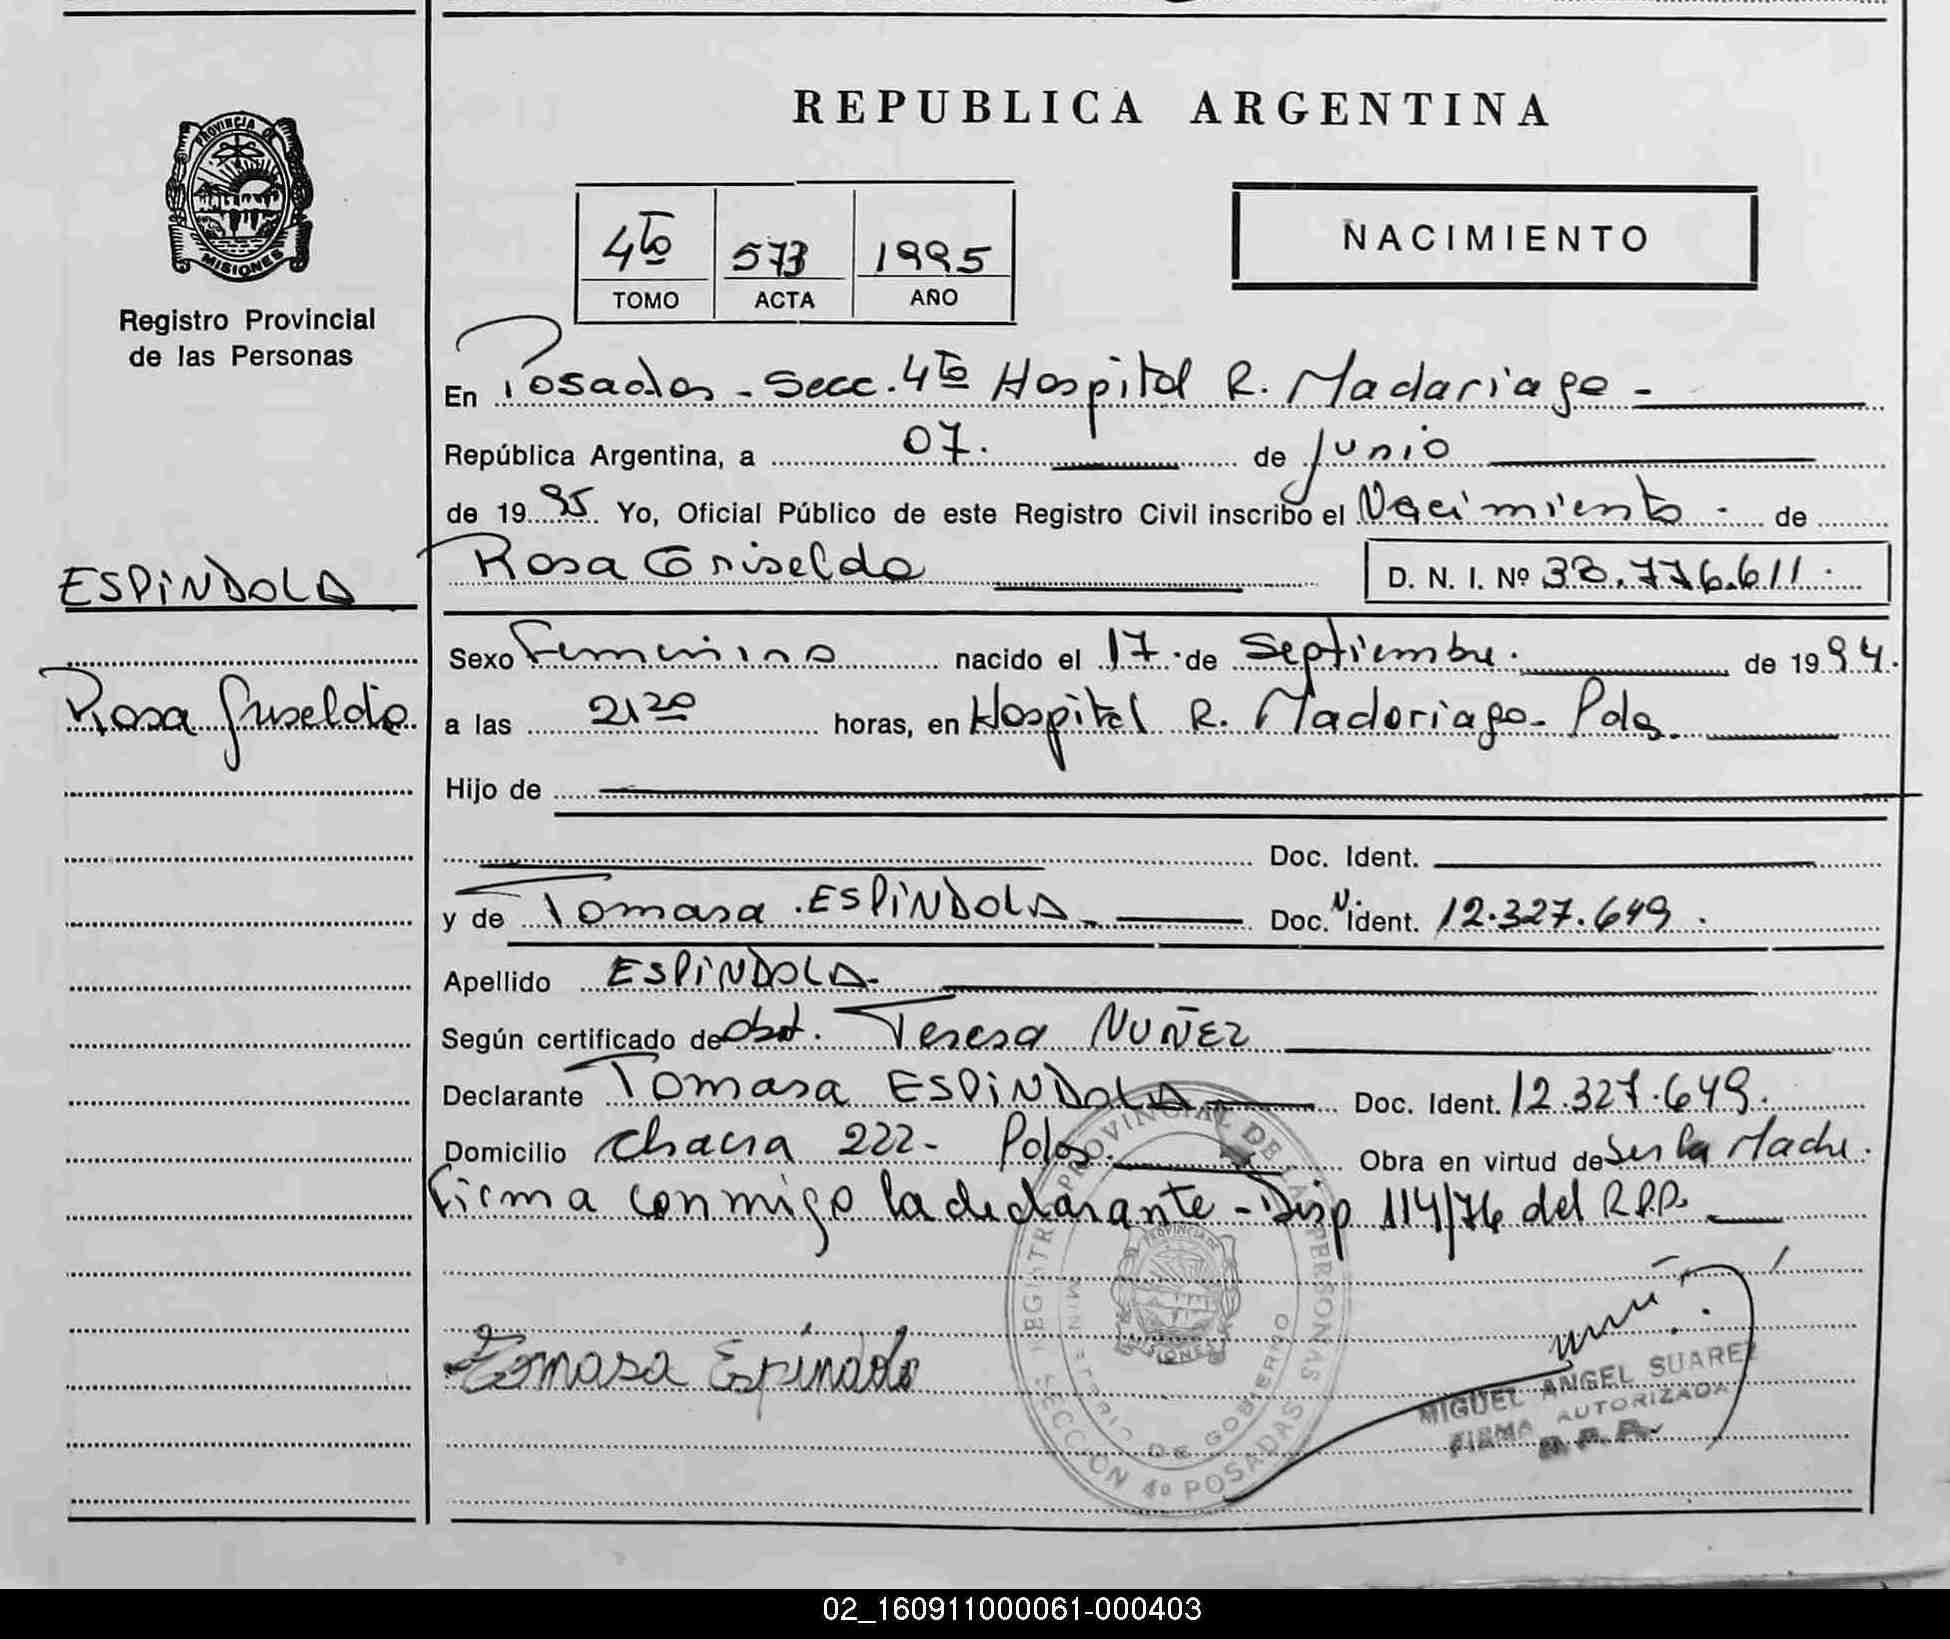 REPUBLICA ARGENTINA
PROVINCIA DE
MISIONES
Registro Provincial
de las Personas
4to 573 1995
TOMO ACTA AÑO
NACIMIENTO
En Posadas - Secc. 4to Hospital R. Madariaga -
República Argentina, a 07. de Junio
de 1995 Yo, Oficial Público de este Registro Civil inscribo el Nacimiento - de
ESPINDOLA
Rosa Griselda D. N. I. Nº 38.776.611.
Sexo Femenino nacido el 17 de Septiembre. de 1994.
Rosa Griselda
a las 21 20 horas, en Hospital R. Madariaga - Pdas.
Hijo de
Doc. Ident.
y de Tomasa ESPINDOLA - Doc. N. Ident. 12.327.649.
Apellido ESPINDOLA -
Según certificado de Obst. Teresa NUÑEZ
Declarante Tomasa ESPINDOLA Doc. Ident. 12.327.649.
Domicilio Chacra 222 - Pdas. Obra en virtud de Ser la Madre.
Firma conmigo la declarante - Disp 114/76 del R.P.P.
REGISTRO PROVINCIAL DE LAS PERSONAS
MINISTERIO DE GOBIERNO
PROVINCIA DE
MISIONES
SECCION 4º POSADAS
Tomasa Espindola
MIGUEL ANGEL SUAREZ
FIRMA AUTORIZADA
R. P. P.
02_160911000061-000403